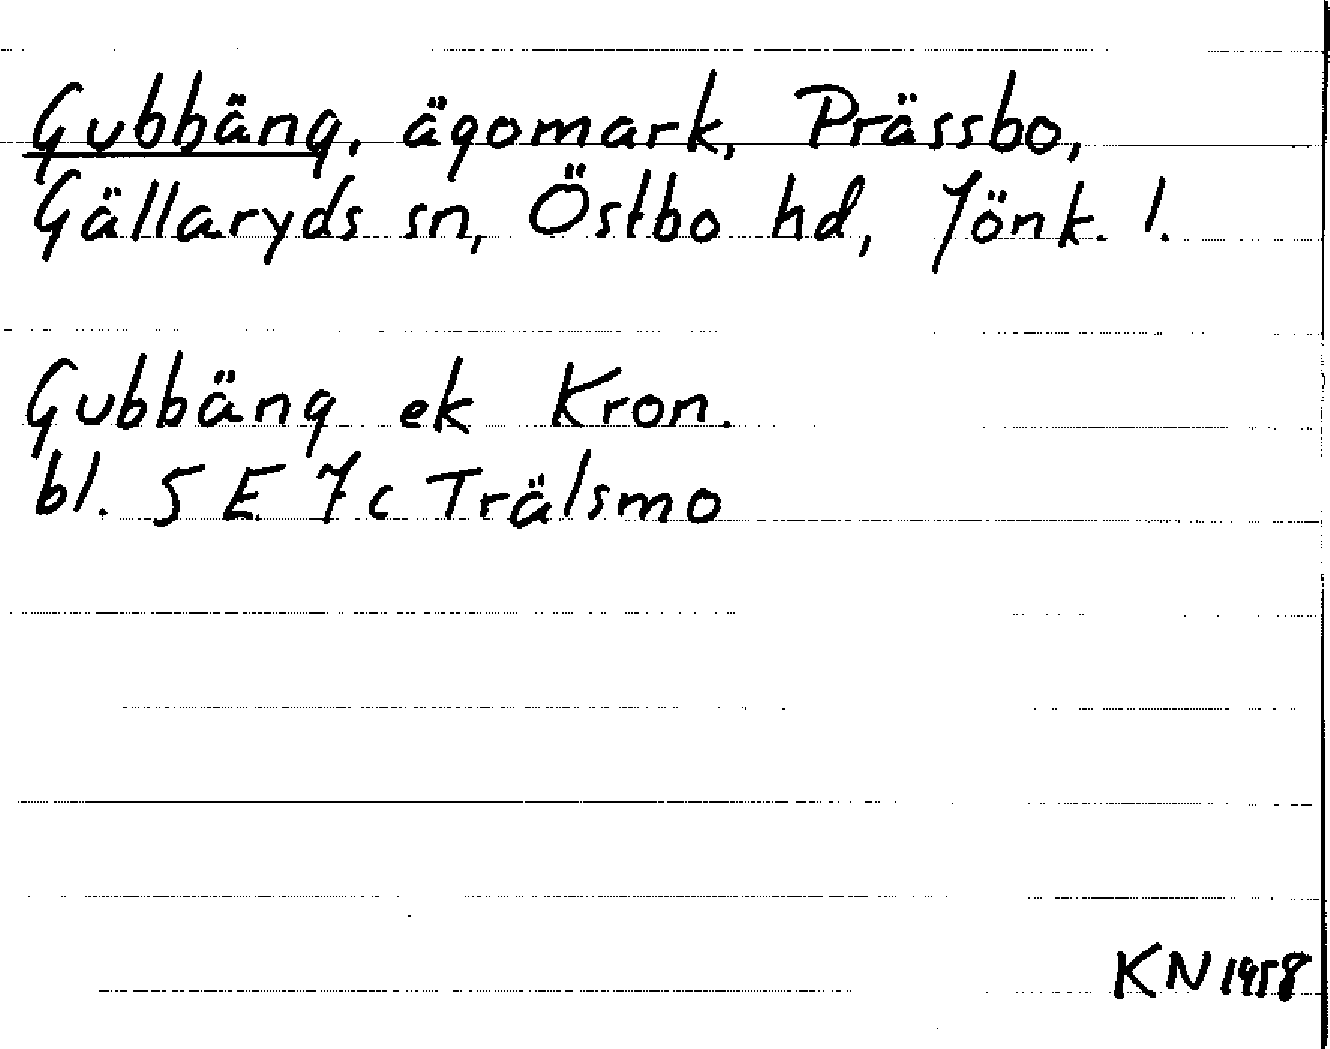 Gubbäng, ägomark, Prässbo,
Gällaryds sn, Östbo hd, Jönk. l.
Gubbäng ek Kron.
bl. 5 E 7 c Trälsmo
KN 1958